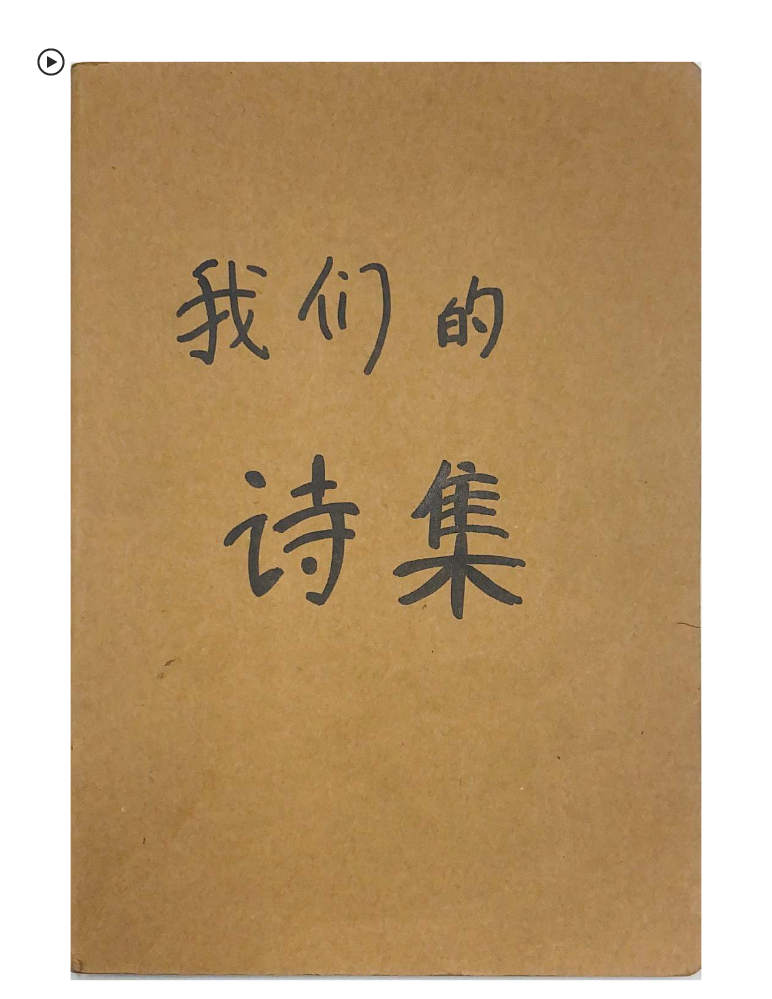 我们的
诗集